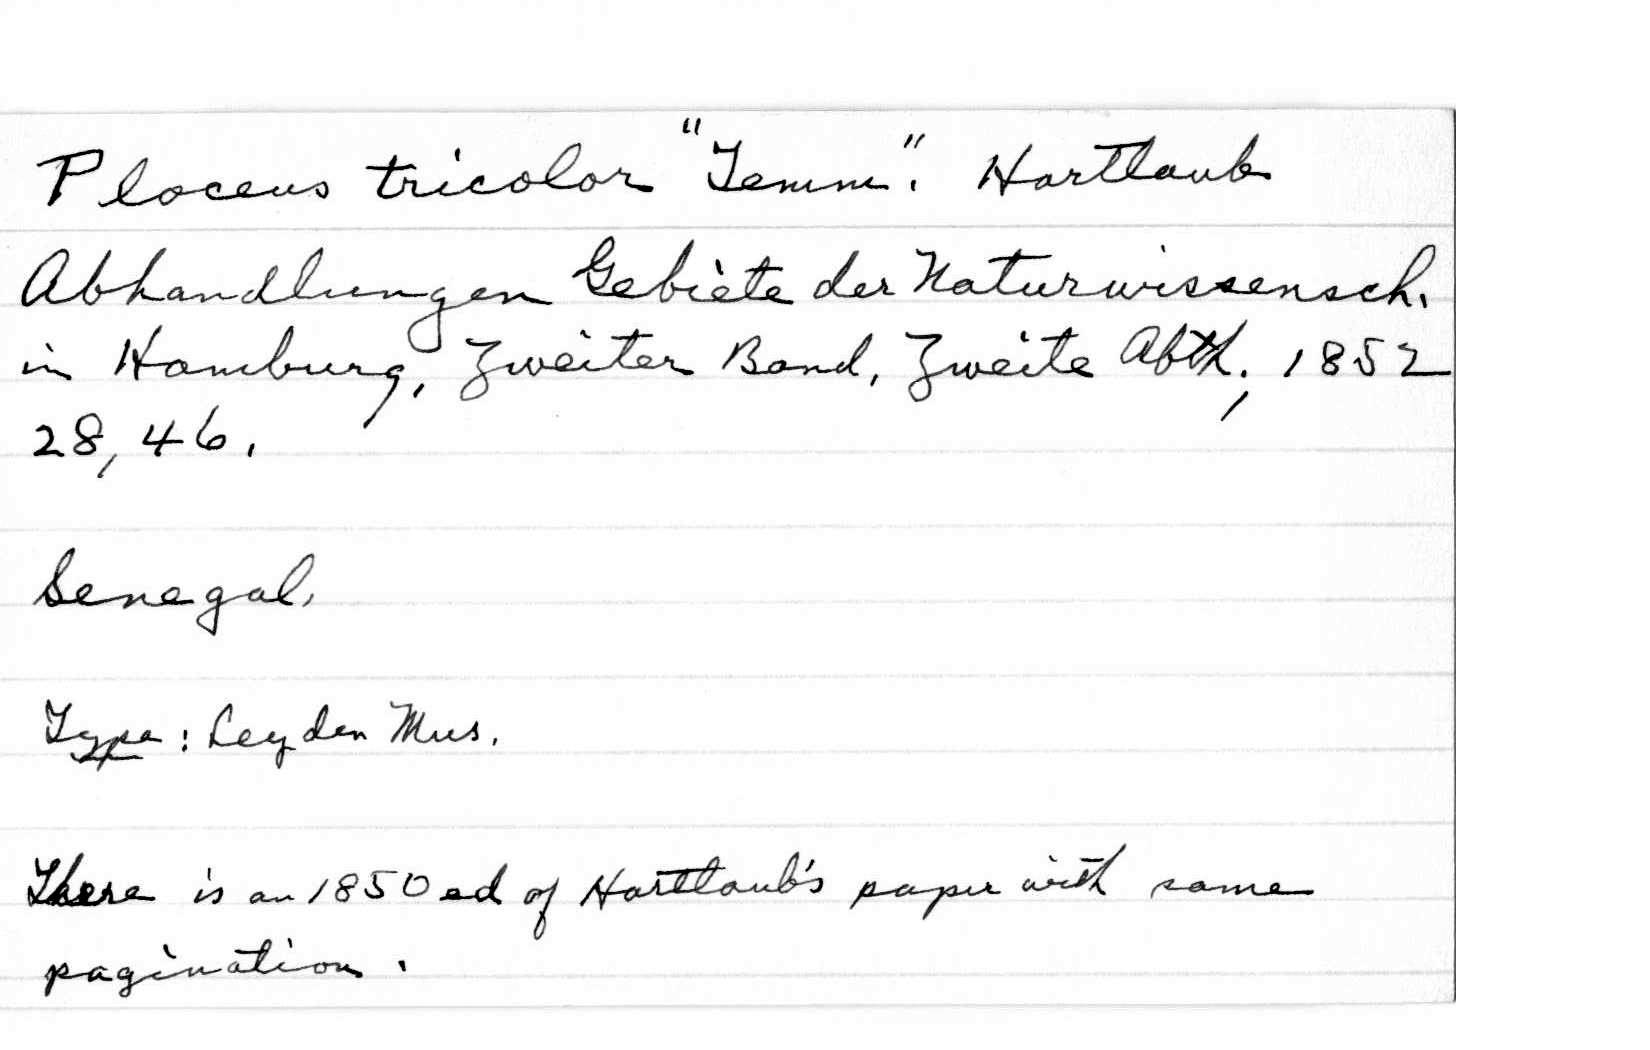 Ploceus tricolor "Temm". Hartlaub
Abhandlungen Gebiete der Naturwissensch.
in Hamburg, Zweiter Band, Zweite Abth., 1852
28, 46.
Senegal.
Type: Leyden Mus.
There is an 1850 ed of Hartlaub's paper with same
pagination.